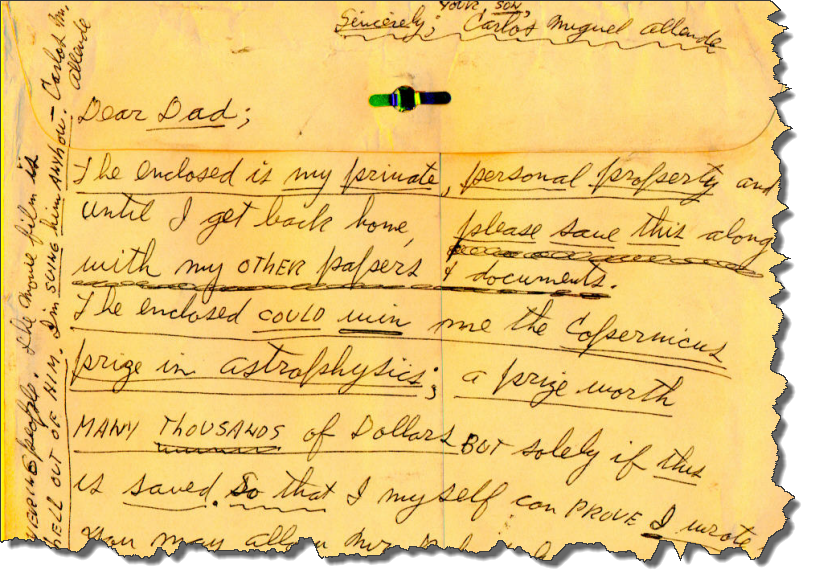 YOUR, SON,
Sincerely; Carlos Miguel Allende
Dear Dad;
The enclosed is my private, personal property and
until I get back home, please save this along
with my OTHER papers & documents.
The enclosed COULD win me the Copernicus
prize in astrophysics; a prize worth
MANY THOUSANDS of Dollars BUT solely if this
is saved. So that I myself can PROVE I wrote
You may allow
people. The movie film is
HELL OUT OF HIM. I'm SUING him ANYHOW. - Carlos M.
Allende